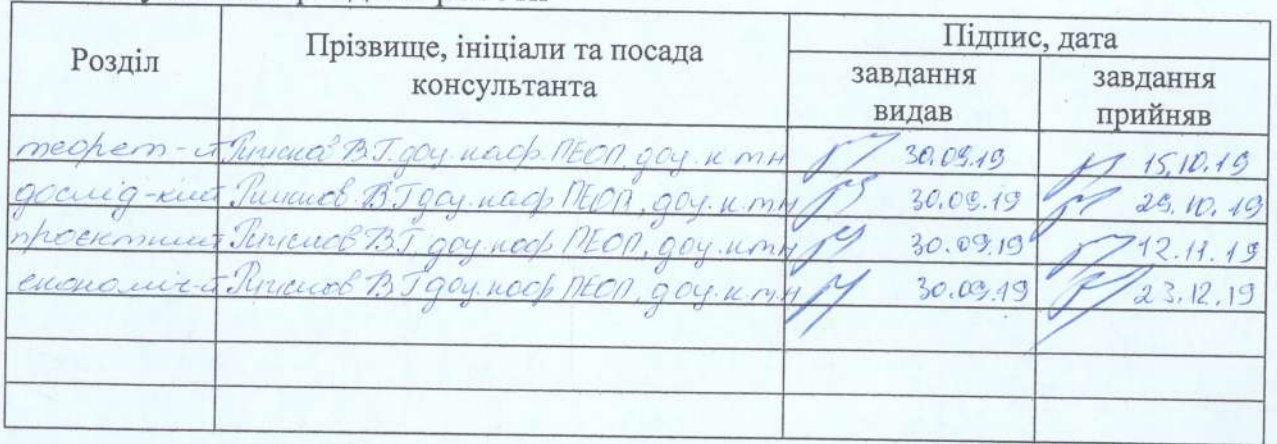 Розділ
Прізвище, ініціали та посада
консультанта
Підпис, дата
завдання
видав
завдання
прийняв
теорет-й В.Г. доц. каф. ПЕОП, доц. к.т.н 30.09.19 15.10.19
дослід-кий В.Г. доц. каф. ПЕОП, доц. к.т.н 30.09.19 29.10.19
проектний В.Г. доц. каф. ПЕОП, доц. к.т.н 30.09.19 12.11.19
економіч-й В.Г. доц. каф. ПЕОП, доц. к.т.н 30.09.19 23.12.19